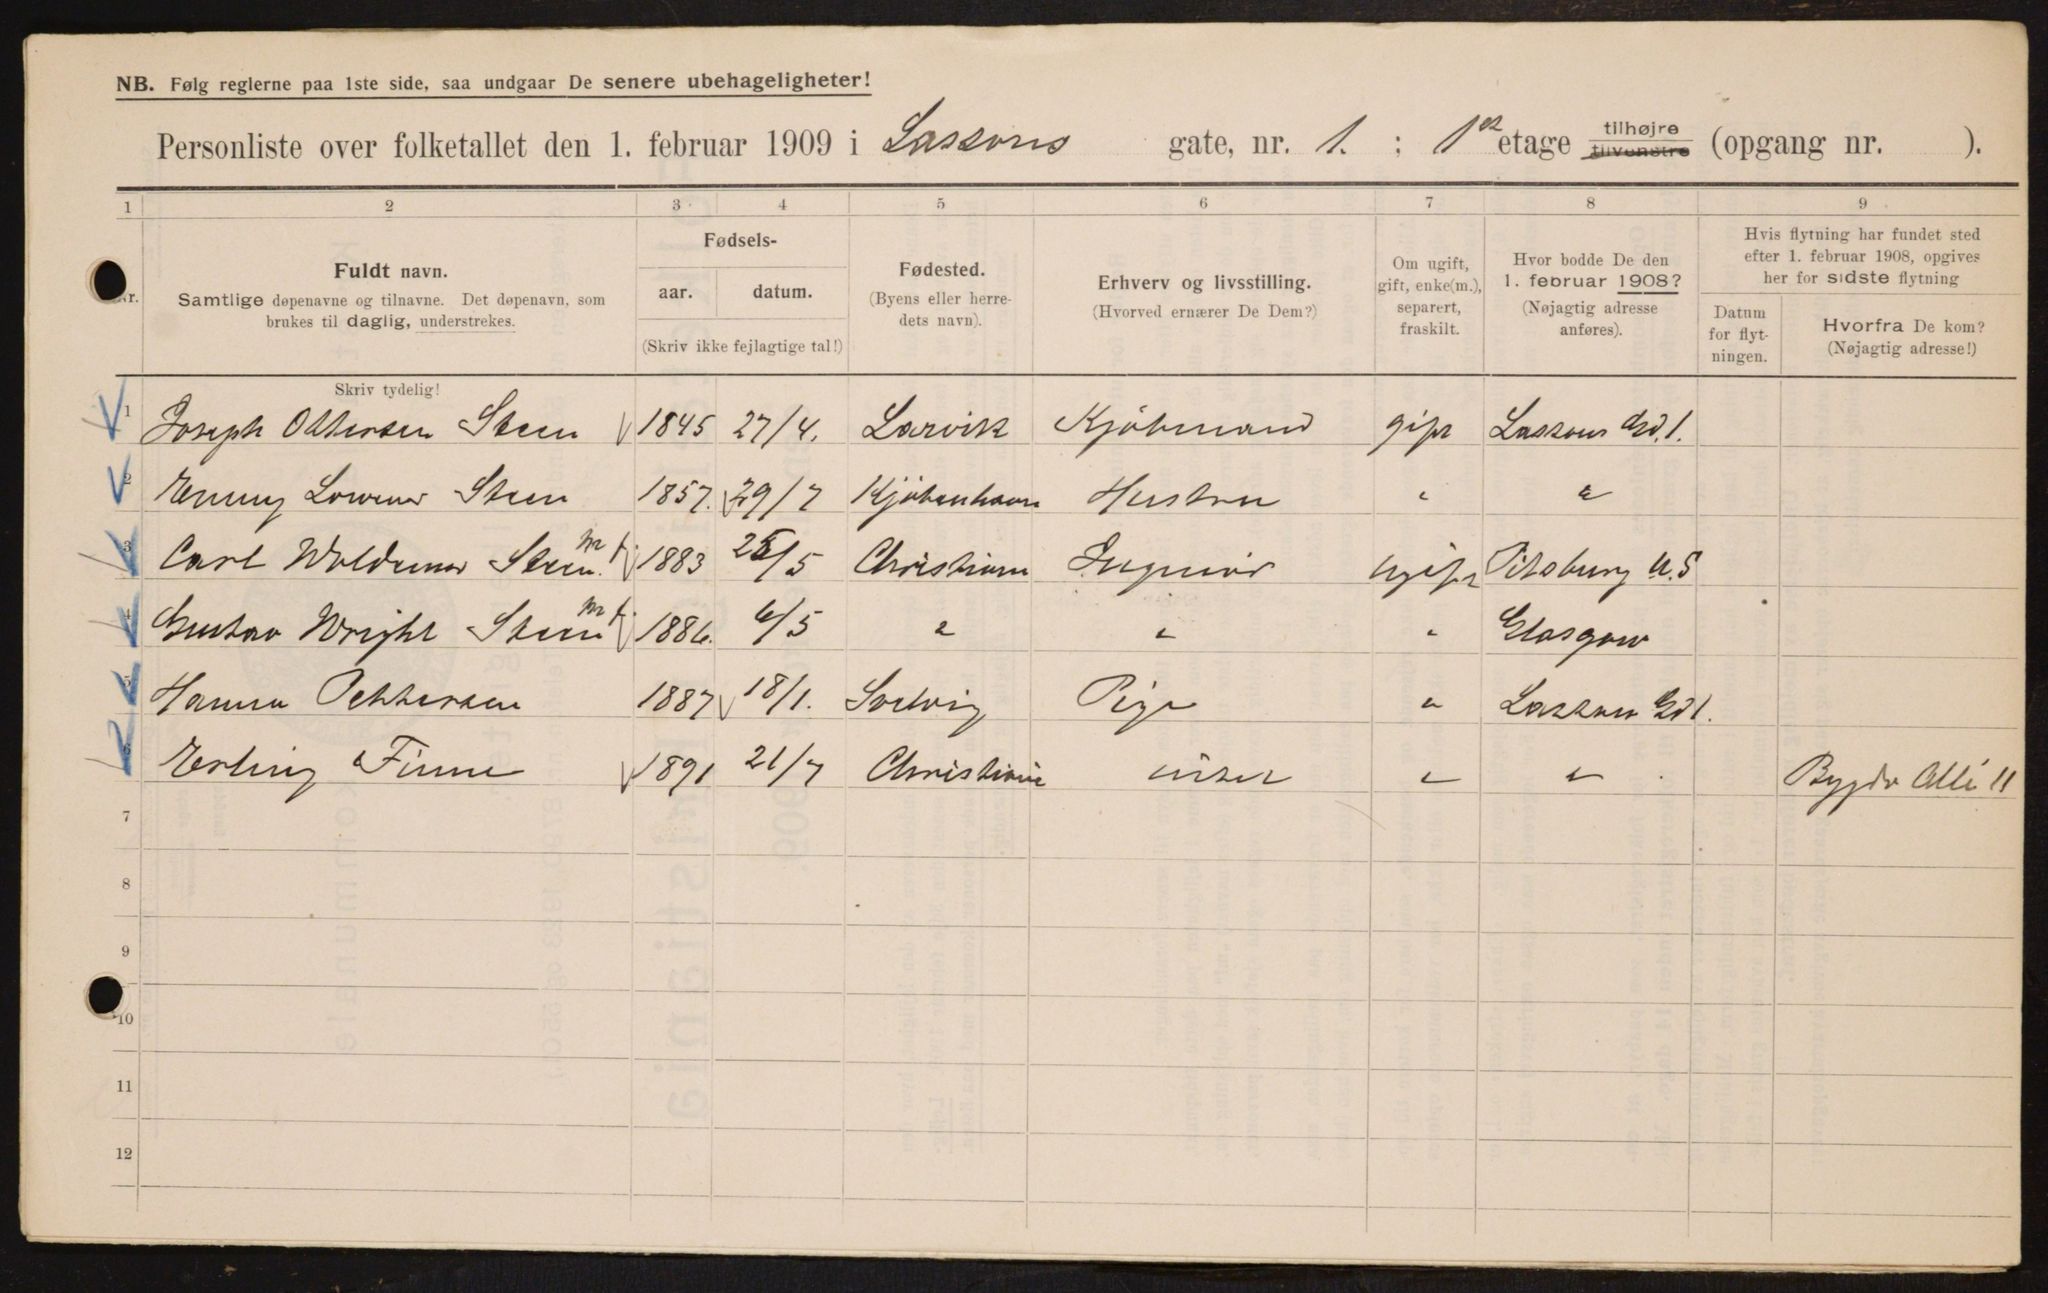 NB. Følg reglerne paa 1ste side, saa undgaar De senere ubehageligheter!
Personliste over folketallet den 1. februar 1909 i Lassons gate, nr. 1. ; 1ste etage tilhøjre tilvenstre (opgang nr. ).
1 2 3 4 5 6 7 8 9
Nr.
Fuldt navn.
Samtlige døpenavne og tilnavne. Det døpenavn, som
brukes til daglig, understrekes.
Fødsels-
aar. datum.
(Skriv ikke fejlagtige tal!)
Fødested.
(Byens eller herre-
dets navn).
Erhverv og livsstilling.
(Hvorved ernærer De Dem?)
Om ugift,
gift, enke(m.),
separert,
fraskilt.
Hvor bodde De den
1. februar 1908?
(Nøjagtig adresse
anføres).
Hvis flytning har fundet sted
efter 1. februar 1908, opgives
her for sidste flytning
Datum
for flyt-
ningen.
Hvorfra De kom?
(Nøjagtig adresse!)
Skriv tydelig!
1 Joseph Ottersen Steen 1845 27/4. Larvik Kjöbmand gift Lassons Gd. 1.
2 Emmy Steen 1857. 29/7 Kjöbenhavn Hustru " "
3 Carl Woldemar Steen. m 1883 25/5 Christiania Ingeniör ugift Pitsburg U.S
4 Gustav Wright Steen m 1886. 6/5 " " " Glasgow
5 Hanna Pettersen 1887 18/1. Solvig Pige " Lassons Gd 1.
6 Erling Finne 1891 21/7 Christiania " " Bygdø Allé 11
7
8
9
10
11
12